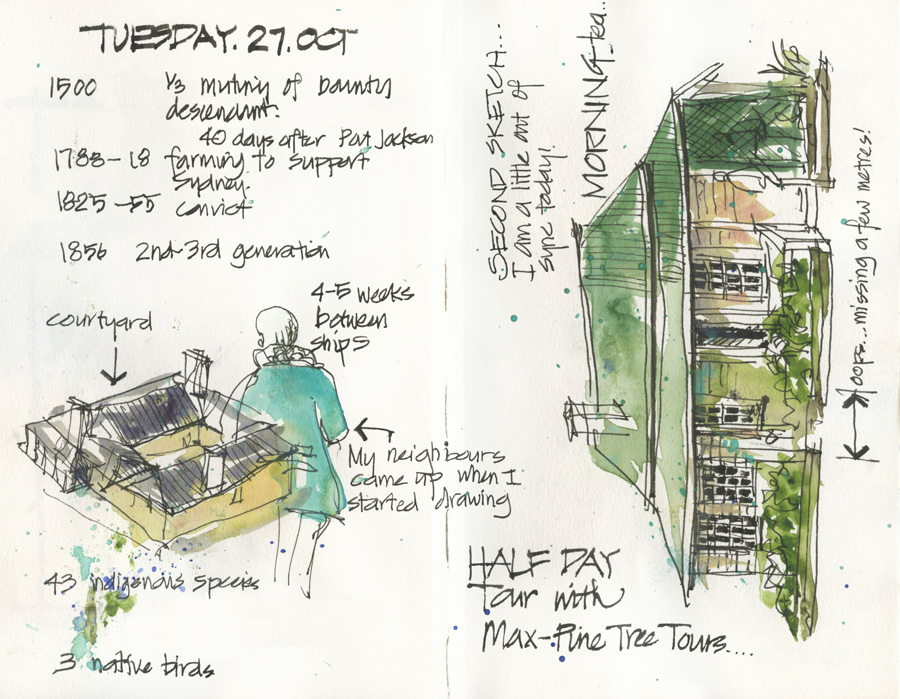 TUESDAY. 27. OCT
1500 1/3 mutiny of bounty
descendant.
40 days after Port Jackson
1788-18 farming to support
Sydney.
1825-55 convict
1856 2nd-3rd generation
courtyard
4-5 weeks
between
ships
My neighbours
came up when I
started drawing
43 indigenous species
3 native birds
SECOND SKETCH...
I am a little out of
sync today!
MORNING tea..
oops...missing a few metres!
HALF DAY
Tour with
Max-Pine Tree Tours....